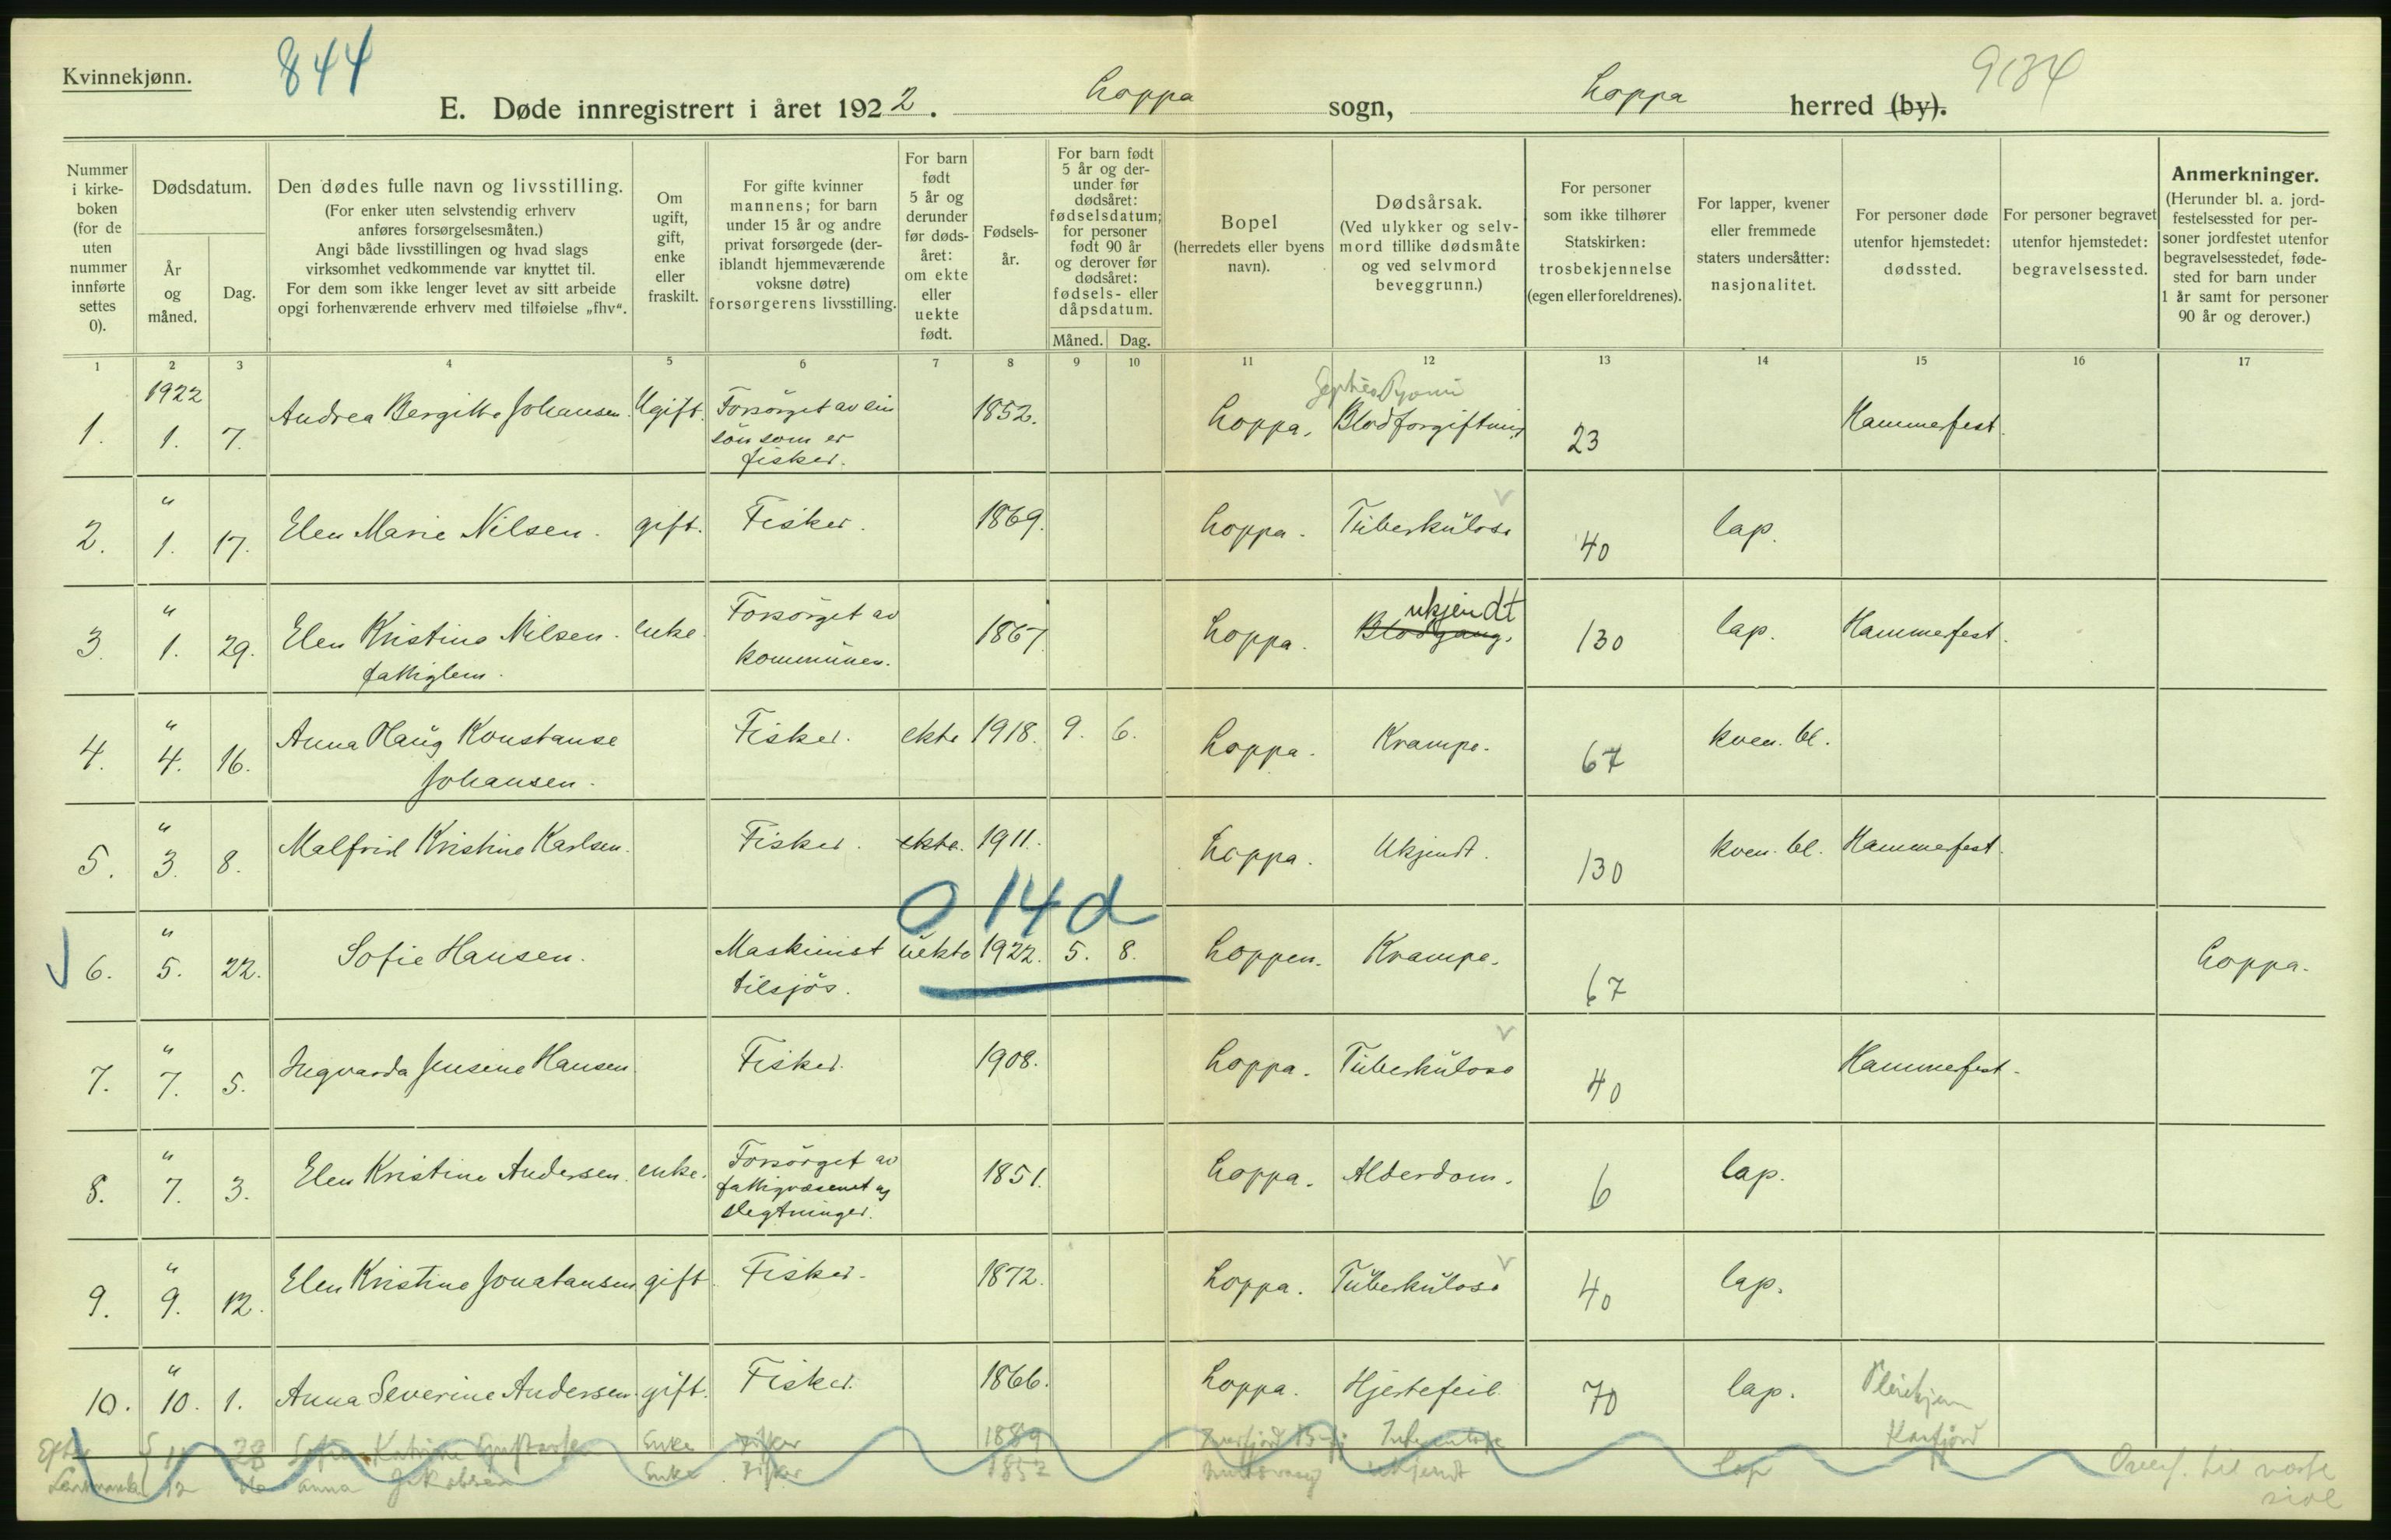 Kvinnekjønn.
844
9134
E. Døde innregistrert i året 1922. Loppa sogn, Loppa herred (by).
Nummer i kirkeboken (for de uten nummer innførte settes 0).
Dødsdatum.
År og måned.
Dag.
Den dødes fulle navn og livsstilling.
(For enker uten selvstendig erhverv anføres forsørgelsesmåten.)
Angi både livsstillingen og hvad slags virksomhet vedkommende var knyttet til.
For dem som ikke lenger levet av sitt arbeide opgi forhenværende erhverv med tilføielse „fhv“.
Om ugift, gift, enke eller fraskilt.
For gifte kvinner mannens; for barn under 15 år og andre privat forsørgede (deriblandt hjemmeværende voksne døtre) forsørgerens livsstilling.
For barn født 5 år og derunder før dødsåret: om ekte eller uekte født.
Fødselsår.
For barn født 5 år og derunder før dødsåret: fødselsdatum; for personer født 90 år og derover før dødsåret: fødsels- eller dåpsdatum.
Måned. Dag.
Bopel (herredets eller byens navn).
Dødsårsak. (Ved ulykker og selvmord tillike dødsmåte og ved selvmord beveggrunn.)
For personer som ikke tilhører Statskirken: trosbekjennelse (egen eller foreldrenes).
For lapper, kvener eller fremmede staters undersåtter: nasjonalitet.
For personer døde utenfor hjemstedet: dødssted.
For personer begravet utenfor hjemstedet: begravelsessted.
Anmerkninger. (Herunder bl. a. jordfestelsessted for personer jordfestet utenfor begravelsesstedet, fødested for barn under 1 år samt for personer 90 år og derover.)
1 2 3 4 5 6 7 8 9 10 11 12 13 14 15 16 17
1922
1. 1. 7. Andrea Bergitte Johansen. Ugift. Forsörget av sin sön som er fisker. 1852. Loppa. Blodforgiftning 23 Hammerfest.
2. " 1. 17. Elen Marie Nilsen. gift. Fisker. 1869. Loppa. Tüberkülose 40 lap.
3. " 1. 29. Elen Kristine Nilsen. fattiglem. enke. Forsörget av kommünen. 1867. Loppa. Blodgang. ukjendt 130 lap. Hammerfest.
4. " 4. 16. Anna Haüg Konstanse Johansen. Fisker. ekte 1918. 9. 6. Loppa. Krampe. 67 kven. bl.
5. " 3. 8. Malfrid Kristine Karlsen. Fisker. ekte. 1911. Loppa. Ukjendt. 130 kven. bl. Hammerfest.
0 14 d
6. " 5. 22. Sofie Hansen. Maskinist tilsjös. üekte 1922. 5. 8. Loppen. Krampe. 67 Loppa.
7. " 7. 5. Ingvarda Jensine Hansen. Fisker. 1908. Loppa. Tüberkülose 40 Hammerfest.
8. " 7. 3. Elen Kristine Andersen. enke. Forsörget av fattigvæsenet og slegtninger. 1851. Loppa. Alderdom. 6 lap.
9. " 9. 12. Elen Kristine Jonatansen gift. Fisker. 1872. Loppa. Tüberkülose 40 lap.
10. " 10. 1. Anna Severine Andersen. gift. Fisker. 1866. Loppa. Hjertefeil. 70 lap.
Kåfjord
11 28 Sofie Katrine Enke Fisker 1889 Tuberkulose
12 Anna Jakobsen Enke Fisker 1852 ukjendt lap
Overf. til næste side